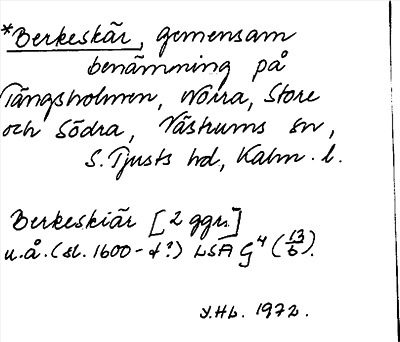 *Berkeskär, gemensam
benämning på
Tängsholmen, Norra, Store
och Södra, Västrums sn,
S. Tjusts hd, Kalm. l.
Berkeskiär [2 ggr.]
u.å. (sl. 1600-t?) LSA G⁴ (13/6).
Y.Hb. 1972.